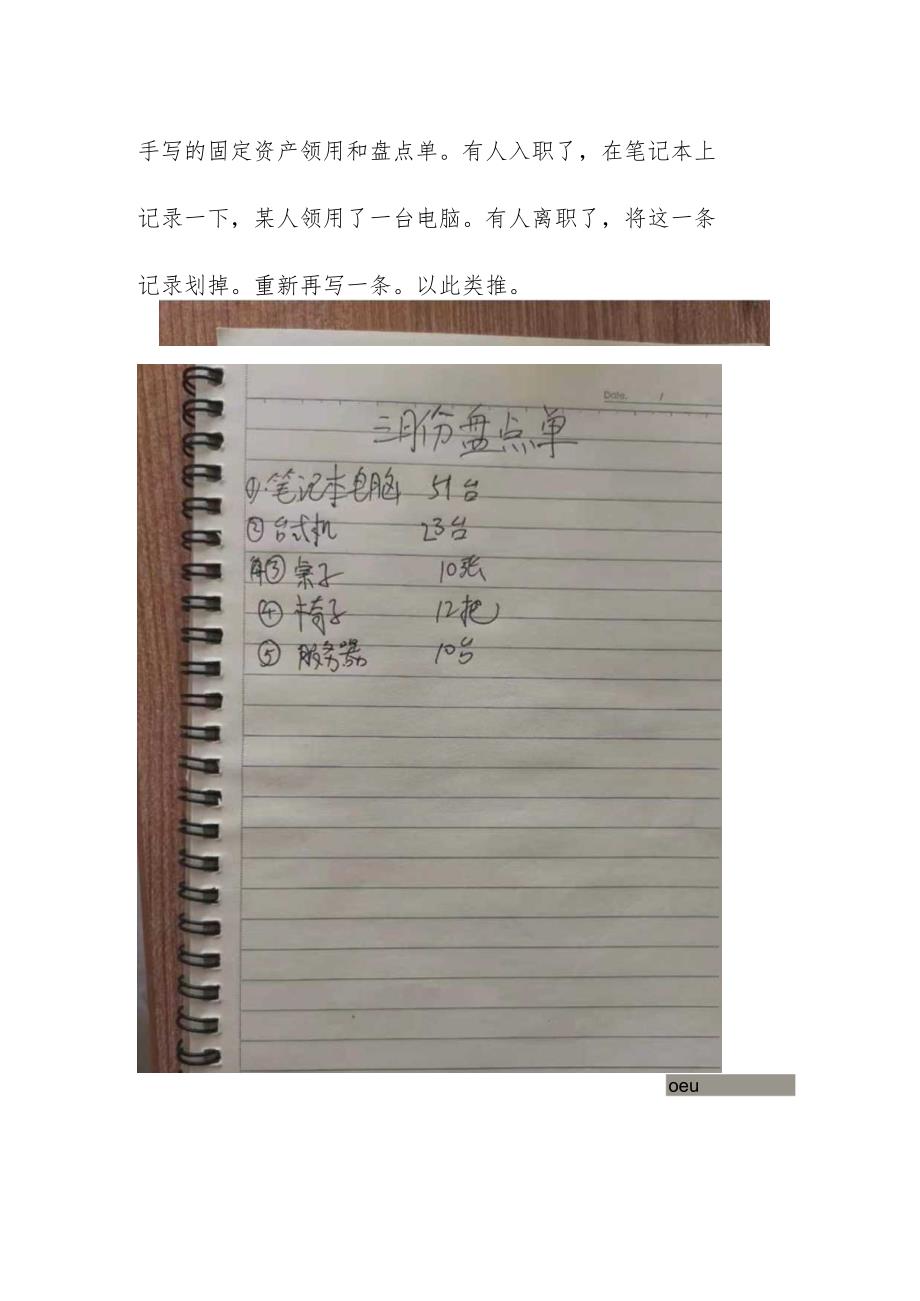 手写的固定资产领用和盘点单。有人入职了，在笔记本上
记录一下，某人领用了一台电脑。有人离职了，将这一条
记录划掉。重新再写一条。以此类推。
Date. /
三月份盘点单
①笔记本电脑 51台
②台式机 23台
③桌子 10张
④椅子 12把
⑤服务器 10台
oeu